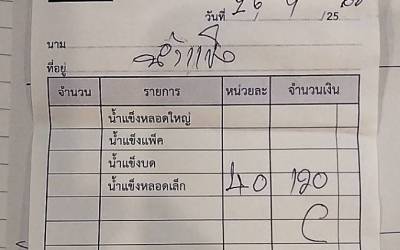 วันที่ 26 / 9 /25
นาม น้ำแข็ง
ที่อยู่
จำนวน รายการ หน่วยละ จำนวนเงิน
น้ำแข็งหลอดใหญ่
น้ำแข็งแพ็ค
น้ำแข็งบด
น้ำแข็งหลอดเล็ก 40 120